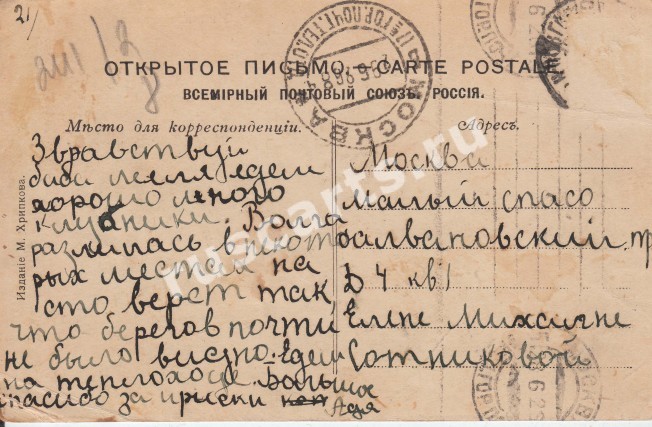 21/
ОТКРЫТОЕ ПИСЬМО. CARTE POSTALE
ВСЕМІРНЫЙ ПОЧТОВЫЙ СОЮЗЪ. РОССІЯ.
Мѣсто для корреспонденціи.
Здравствуй
едем
хорошо много
клубники. Волга
разлилась в некото
рых местах на
сто верст так
что берегов почти
не было видно. Едем
на теплоходе. Больша
спасибо за ириски
Адя
Адресъ.
Москва
Малый Спасо
балвановский пр
Д 4 кв 1
Елене Михайлне
Сотниковой
Изданіе М. Хрипкова.
МОСКВА
ruscards.ru